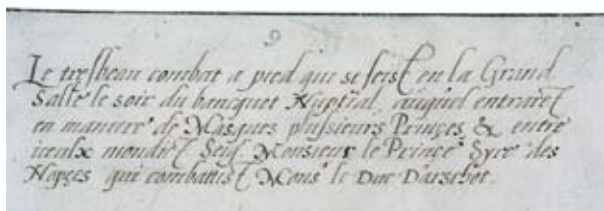 9
Le tresbeau combat a pied qui se feist en la Grand
Salle le soir du bancquet Nuptial, auquel entraret
en maniere de Masques plusieurs Princes, & entre
iceulx Monsieur le Prince Syre des
Nopces qui combattist Mons.r le Duc Darschot.